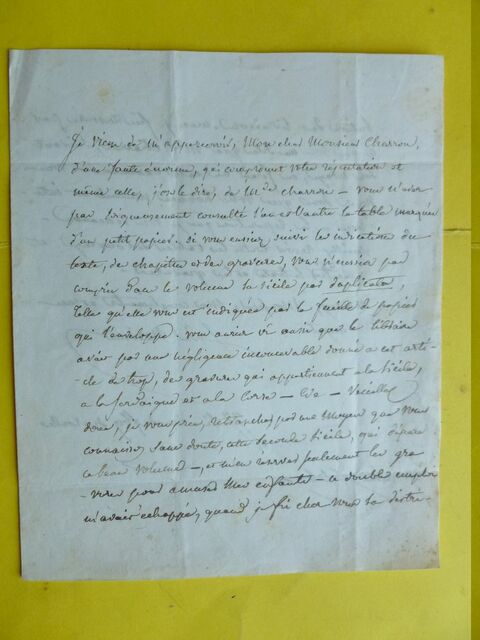 Je viens de m'appercevoir, Mon cher Monsieur Charron,
d'une faute énorme, qui compromet votre réputation et
même celle, j'ose le dire, de Mde Charron — vous n'avez
par soigneusement consulté l'un et l'autre la table marquée
d'un petit papier. Si vous eussiez suivi les indications du
texte, des chapitres et des gravures, vous n'eussiez pas
compris dans le volume la Sicile par duplicata,
telle qu'elle vous est indiquée par la feuille de papier
qui l'enveloppe. Vous auriez vu aussi que le libraire
avait par une négligence inexcusable donné a cet arti-
cle de trop, des gravures qui appartiennent a la Sicile,
a la Sardaigne et a la Corse — Veuillez
donc, je vous prie, retrancher par un moyen que vous
connaissez sans doute, cette seconde Sicile, qui dépare
ce beau volume — et m'en réserver seulement les gra-
vures pour amuser mes enfants — ce double emploi
m'avait échappé, quand je fis chez vous la distri-